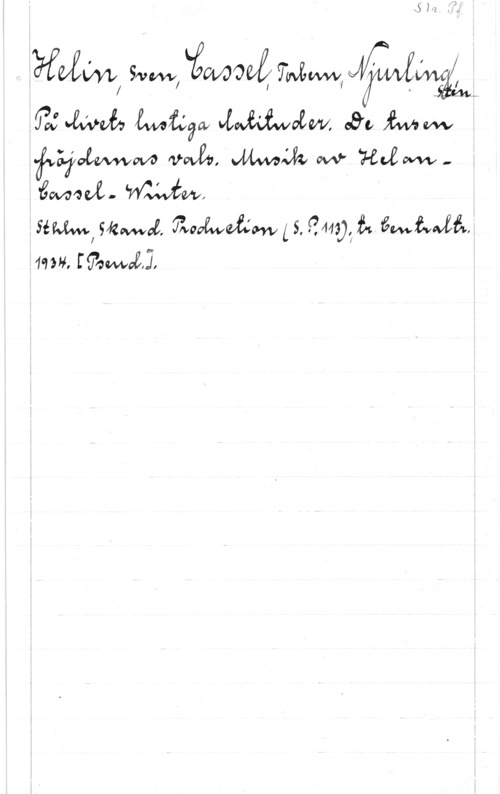 Str. Pf.
Helin, Sven, Cassel, Torbern, Njurling, Sten
På livets lustiga latituder. De tusen
fröjdernas vals. Musik av Helan -
Cassel - Winter.
Sthlm, Skand. Production (S. P. 113), tr. Centraltr.
1934. [Pseud.].